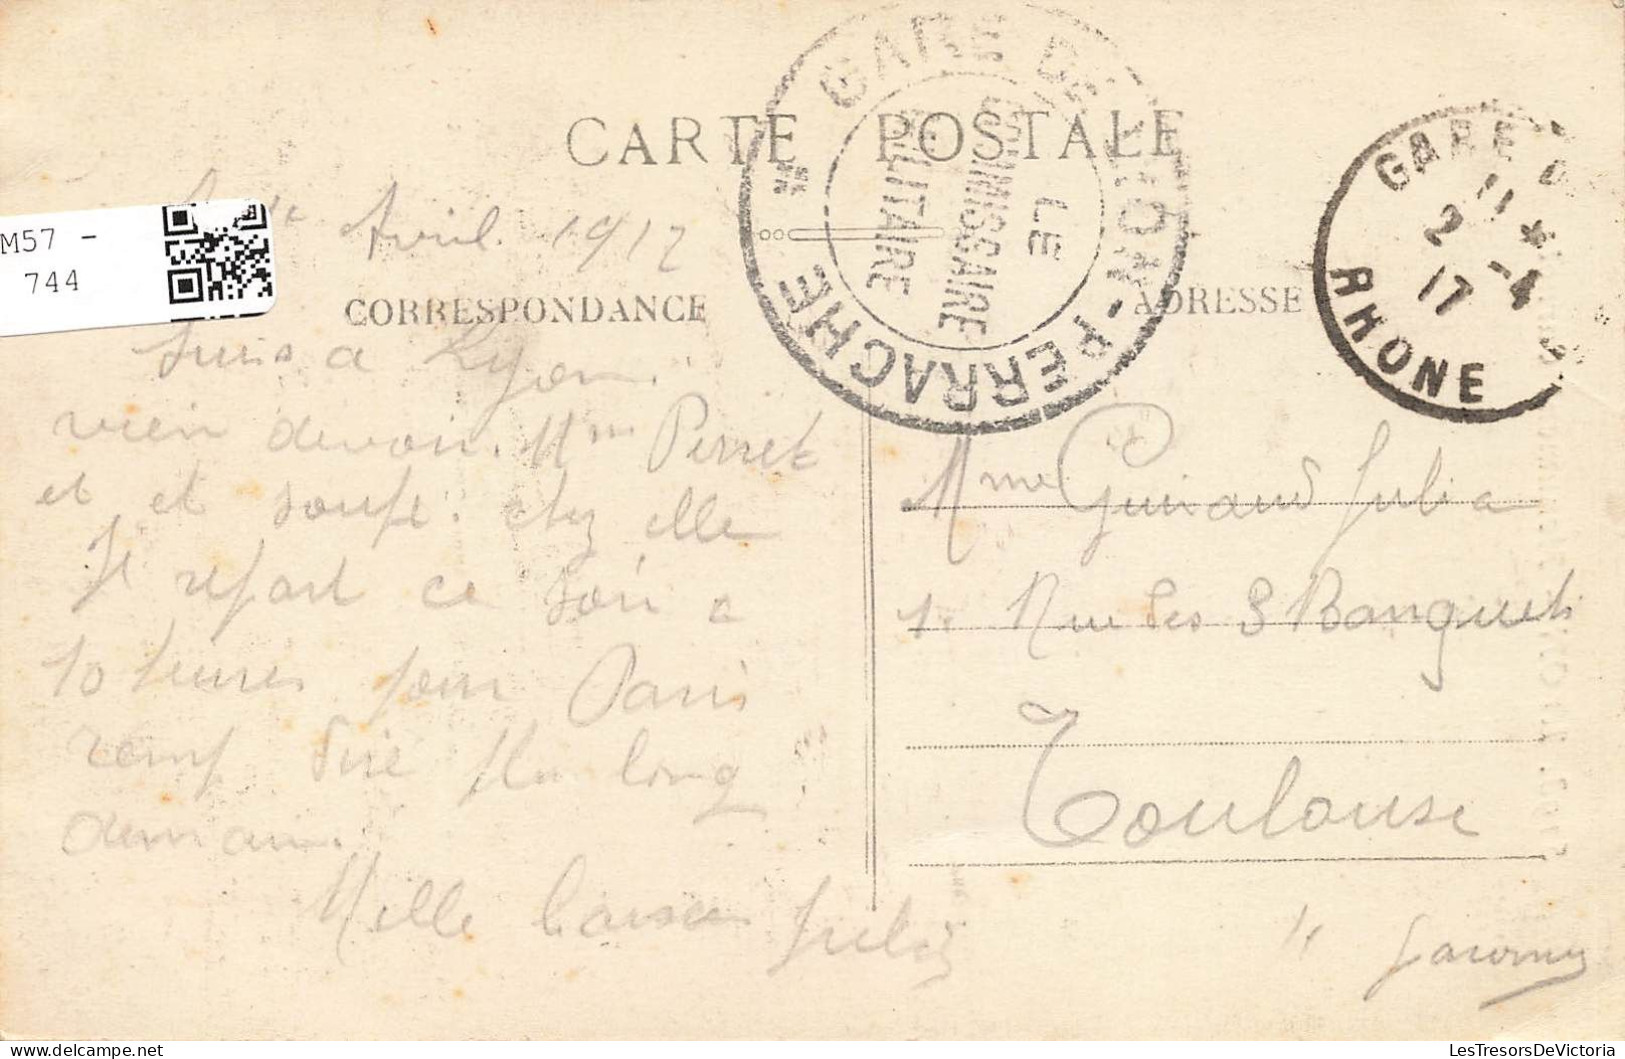 CARTE POSTALE
GARE DE LYON-PERRACHE
LE
COMMISSAIRE
MILITAIRE
GARE
11 *
2 -4
17
RHONE
M57 -
744
Avril 1917
CORRESPONDANCE
ADRESSE
Suis a Lyon.
vien devoir Mme Perret
et et soupe chez elle
Je repart ce soir a
10 heures pour Paris
dire plu long
demain.
Mille baiser Julia
Mme Guiraud Julia
1. Rue des 3 Banquets
Toulouse
Hte Garonne
LesTresorsDeVictoria